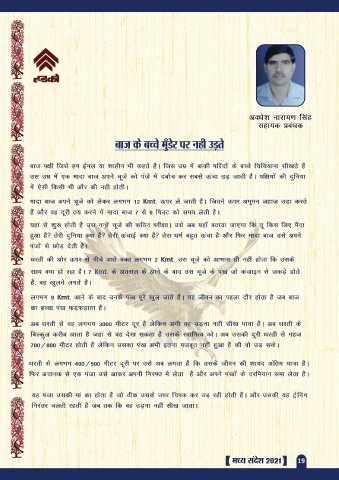 हडको
अवधेश नारायण सिंह
सहायक प्रबंधक
बाज के बच्चे मुँडेर पर नही उड़ते
बाज पक्षी जिसे हम ईगल या शाहीन भी कहते है। जिस उम्र में बाकी परिंदों के बच्चे चिचियाना सीखते है
उस उम्र में एक मादा बाज अपने चूजे को पंजे में दबोच कर सबसे ऊंचा उड़ जाती है। पक्षियों की दुनिया
में ऐसी किसी भी और की नही होती।
मादा बाज अपने चूजे को लेकर लगभग 12 Kmt. ऊपर ले जाती है। जितने ऊपर अमूमन जहाज उड़ा करते
हैं और वह दूरी तय करने में मादा बाज 7 से 9 मिनट का समय लेती है।
यहां से शुरू होती है उस नन्हें चूजे की कठिन परीक्षा। उसे अब यहाँ बताया जाएगा कि तू किस लिए पैदा
हुआ है? तेरी दुनिया क्या है? तेरी ऊंचाई क्या है? तेरा धर्म बहुत ऊंचा है और फिर मादा बाज उसे अपने
पंजों से छोड़ देती है।
धरती की ओर ऊपर से नीचे आते वक्त लगभग 2 Kmt. उस चूजे को आभास ही नहीं होता कि उसके
साथ क्या हो रहा है। 7 Kmt. के अंतराल के आने के बाद उस चूजे के पंख जो कंजाइन से जकड़े होते
है, वह खुलने लगते है।
लगभग 9 Kmt. आने के बाद उनके पंख पूरे खुल जाते है। यह जीवन का पहला दौर होता है जब बाज
का बच्चा पंख फडफडाता है।
अब धरती से वह लगभग 3000 मीटर दूर है लेकिन अभी वह उड़ना नहीं सीख पाया है। अब धरती के
बिल्कुल करीब आता है जहां से वह देख सकता है उसके स्वामित्व को। अब उसकी दूरी धरती से महज
700/800 मीटर होती है लेकिन उसका पंख अभी इतना मजबूत नहीं हुआ है की वो उड़ सके।
धरती से लगभग 400/500 मीटर दूरी पर उसे अब लगता है कि उसके जीवन की शायद अंतिम यात्रा है।
फिर अचानक से एक पंजा उसे आकर अपनी गिरफ्त मे लेता है और अपने पंखों के दरमियान समा लेता है।
यह पंजा उसकी मां का होता है जो ठीक उसके उपर चिपक कर उड रही होती है। और उसकी यह ट्रेनिंग
निरंतर चलती रहती है जब तक कि वह उड़ना नहीं सीख जाता।
[ मध्य संदेश 2021 ] 19